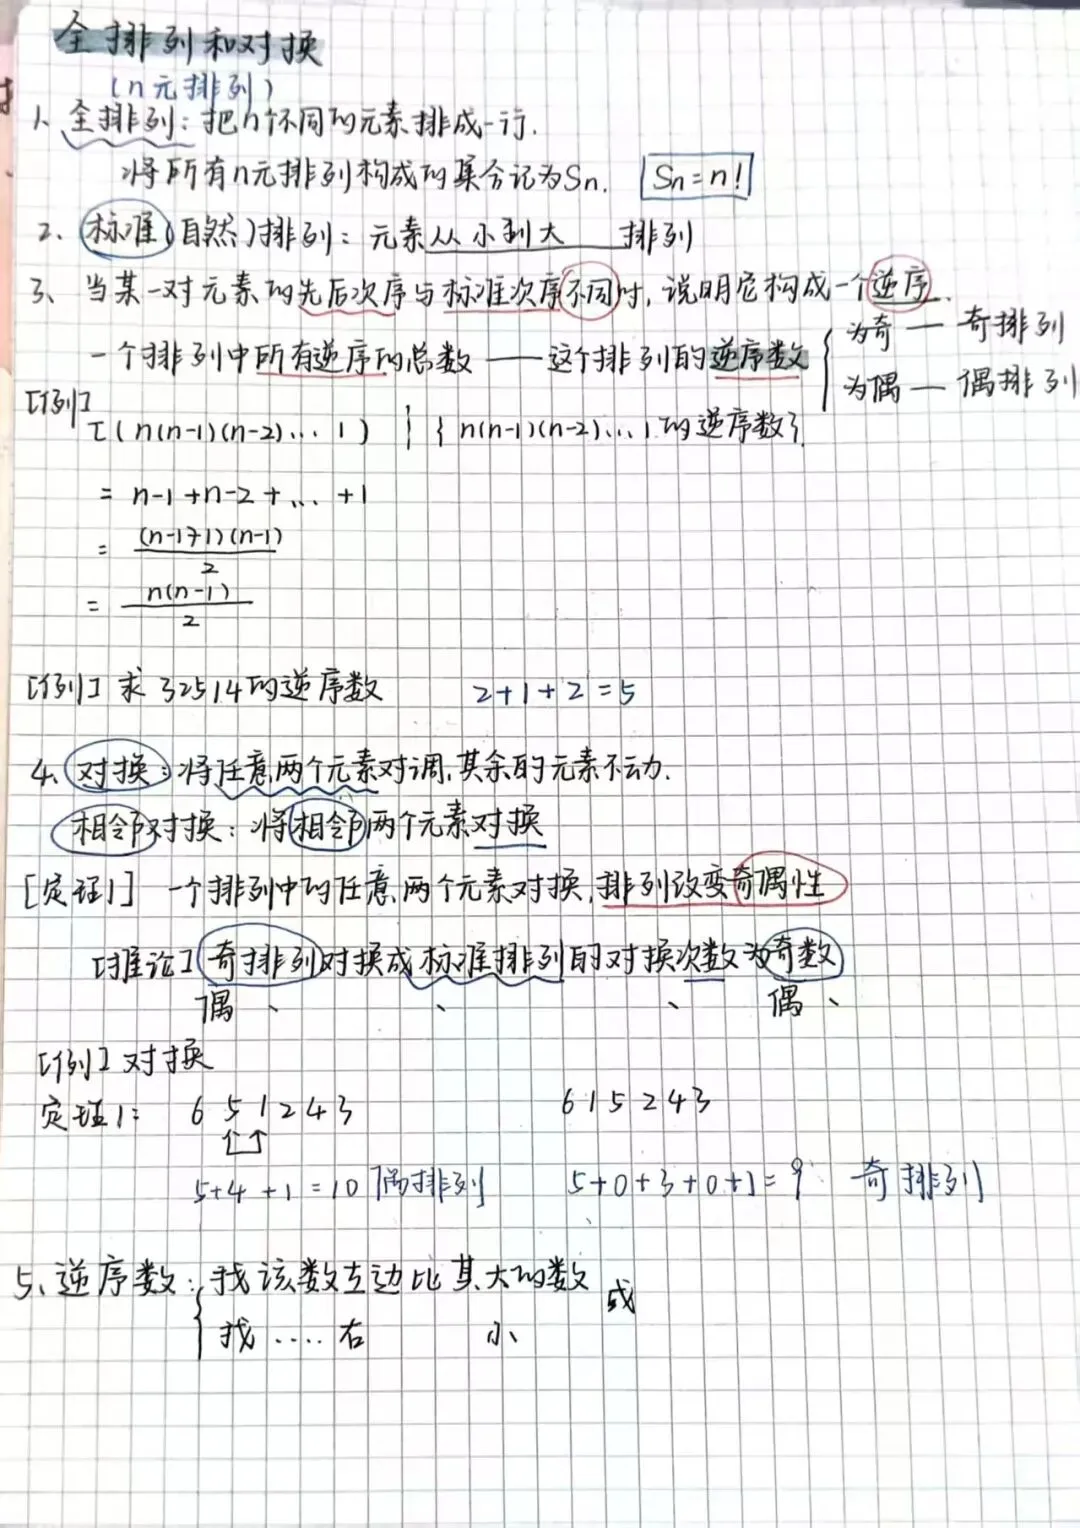 全排列和对换
(n元排列)
1、全排列:把n个不同的元素排成一行.
将所有n元排列构成的集合记为Sn. Sn=n!
2、标准(自然)排列:元素从小到大 排列
3、当某一对元素的先后次序与标准次序不同时,说明它构成一个逆序.
一个排列中所有逆序的总数——这个排列的逆序数 { 为奇—奇排列
为偶—偶排列
[例]
τ(n(n-1)(n-2)...1) } { n(n-1)(n-2)...1.的逆序数}
= n-1+n-2+...+1
= (n-1+1)(n-1)/2
= n(n-1)/2
[例]求32514的逆序数 2+1+2=5
4、对换:将任意两个元素对调,其余的元素不动.
相邻对换:将相邻两个元素对换
[定理1] 一个排列中的任意两个元素对换,排列改变奇偶性
[推论]奇排列对换成标准排列的对换次数为奇数
偶、 、 、 偶、
[例]对换
定理1: 651243 615243
5+4+1=10 偶排列 5+0+3+0+1=9 奇排列
5、逆序数:{ 找该数左边比其大的数 或
找....右 小、